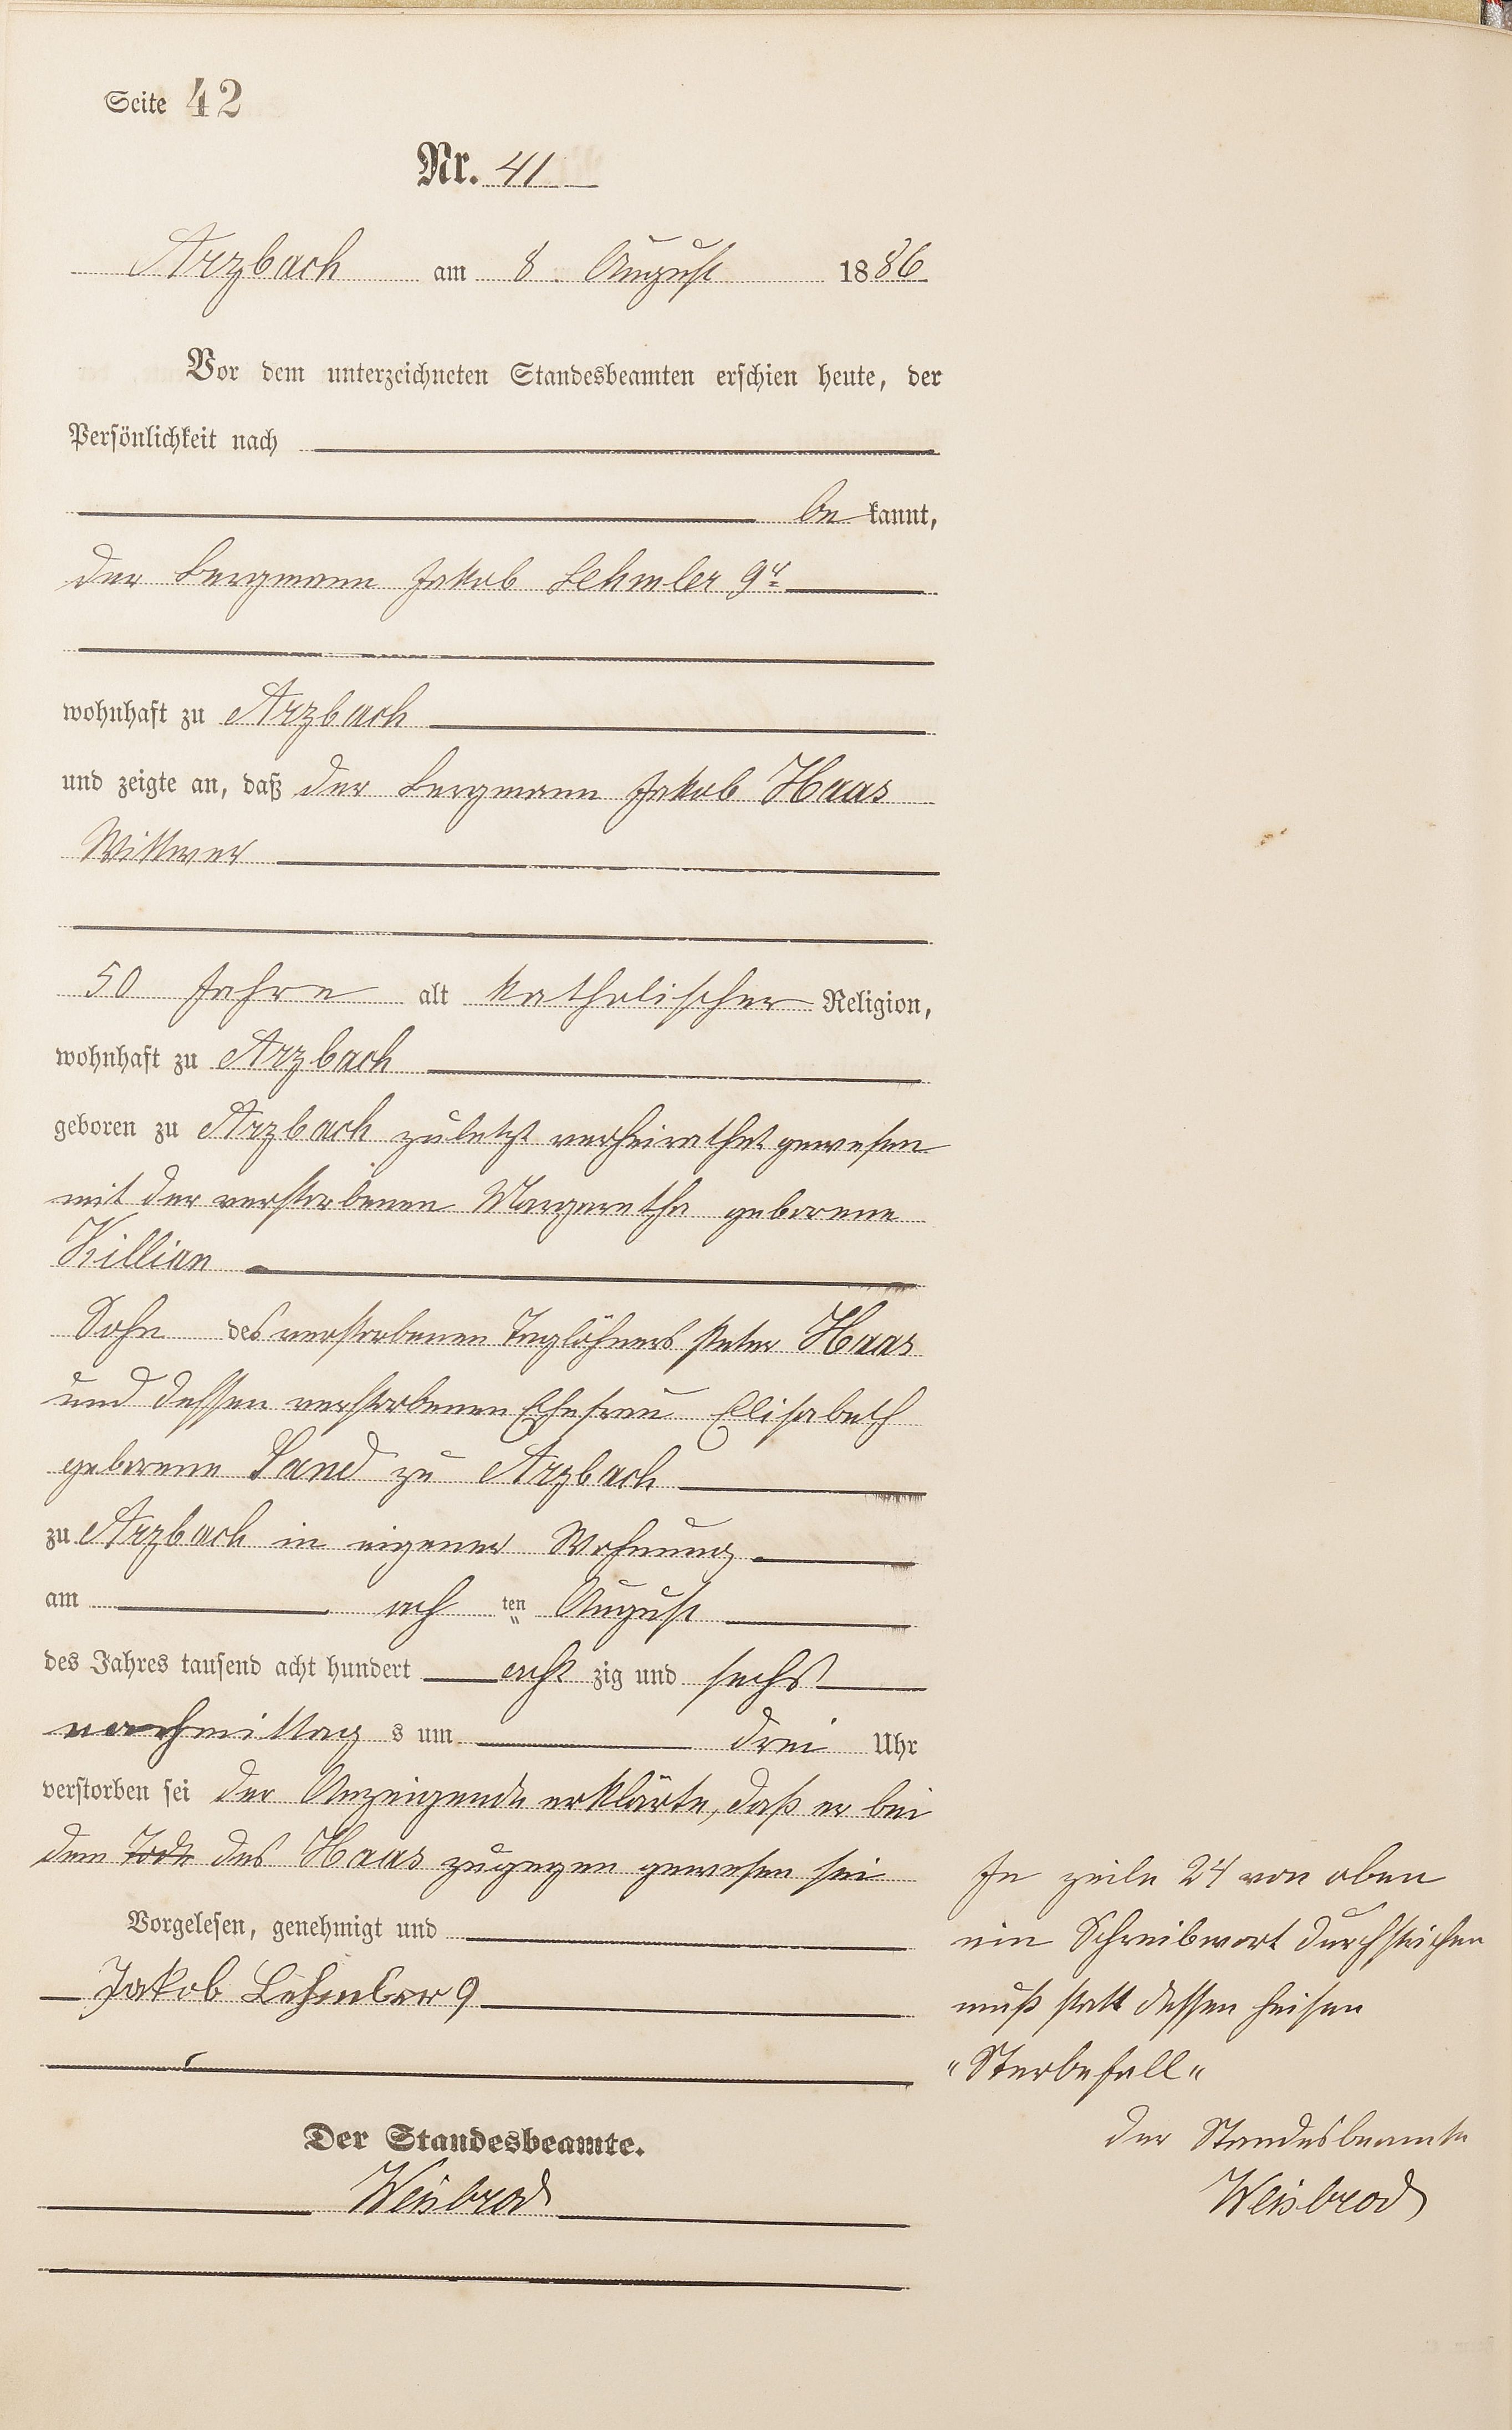 Seite 42
Nr. 41
Arzbach am 8. August 1886
Vor dem unterzeichneten Standesbeamten erschien heute, der
Persönlichkeit nach
be kannt,
der Bergmann Jakob Lehmler 9r
wohnhaft zu Arzbach
und zeigte an, daß der Bergmann Jakob Haas
Wittwer
50 Jahre alt katholischer Religion,
wohnhaft zu Arzbach
geboren zu Arzbach zuletzt verheirathet gewesen
mit der verstorbenen Margaretha geborene
Killian
Sohn des verstorbenen Taglöhners Peter Haas
und dessen verstorbenen Ehefrau Elisabeth
geborene Sand zu Arzbach
zu Arzbach in eigener Wohnung
am ach ten August
des Jahres tausend acht hundert acht zig und sechs
nachmittag s um drei Uhr
verstorben sei der Anzeigende erklärte, daß er bei
dem Tode des Haas zugegen gewesen sei
Vorgelesen, genehmigt und
Jakob Lehmler 9
Der Standesbeamte.
Weisbrod
In Zeile 24 von oben
ein Schreibwort durchstrichen
muß statt dessen heisen
"Sterbefall"
der Standesbeamte
Weisbrod